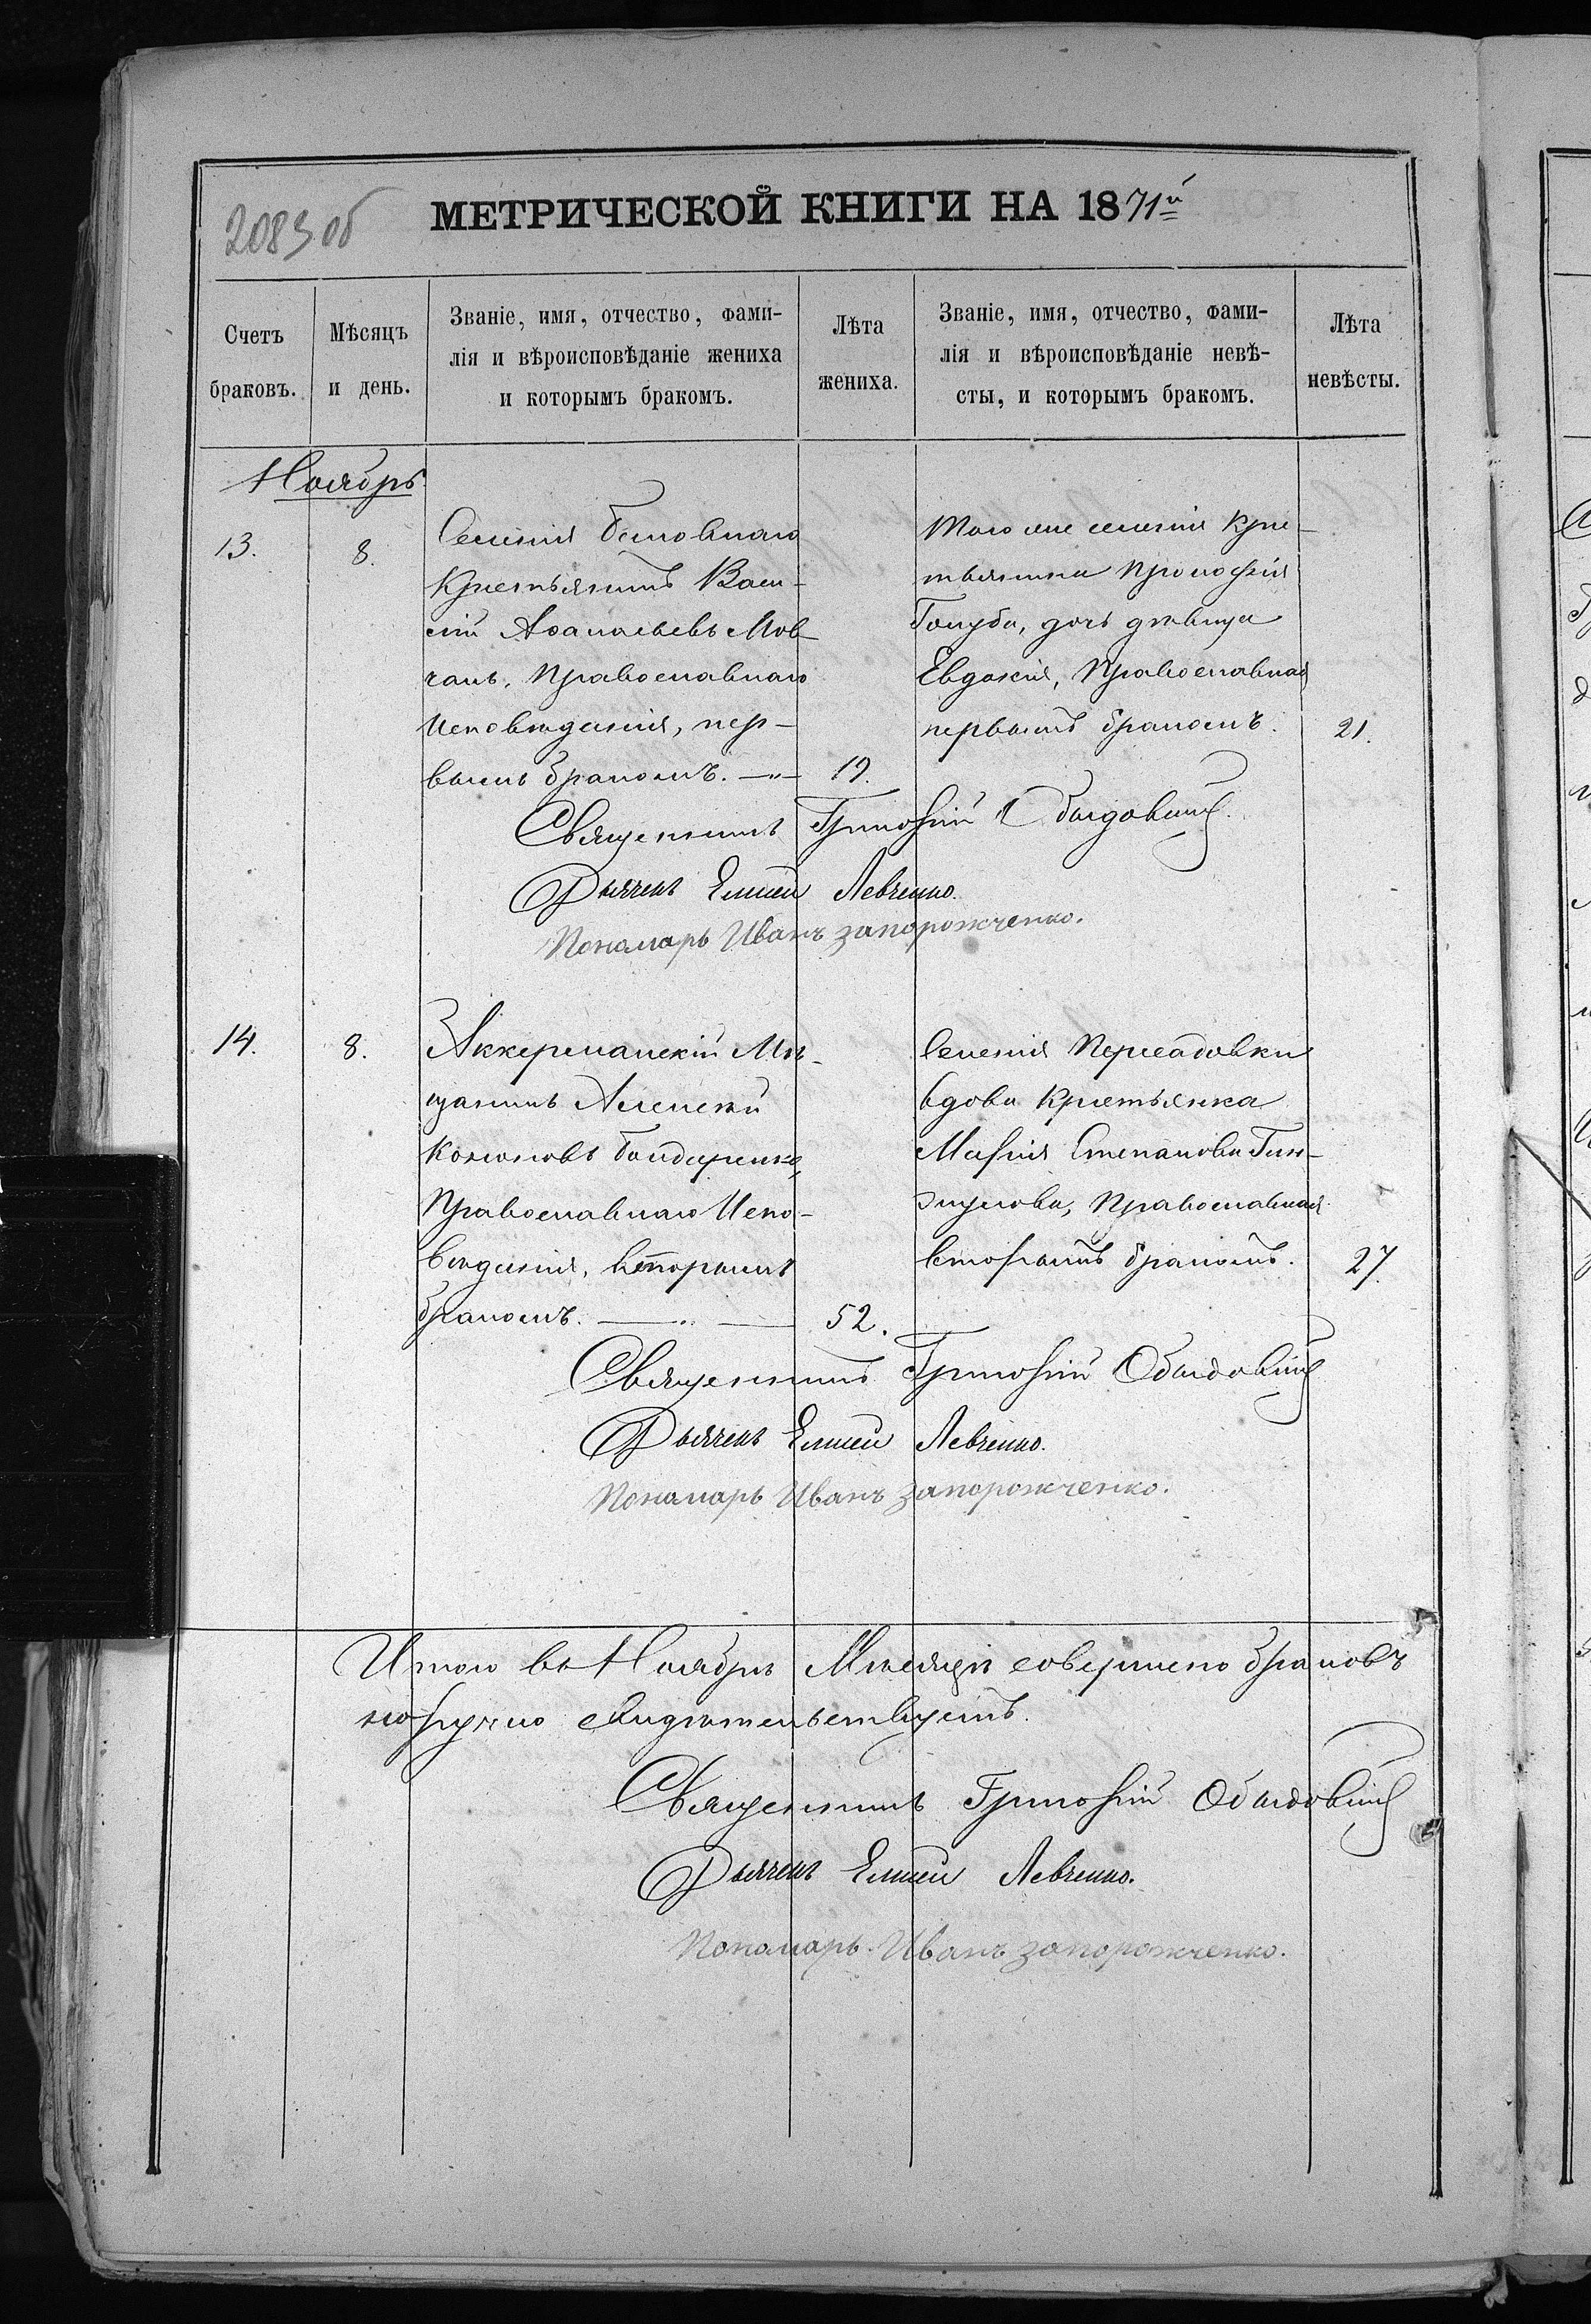 2083 об
МЕТРИЧЕСКОЙ КНИГИ НА 1871й
Счетъ браковъ.
Мѣсяцъ и день.
Званіе, имя, отчество, фами-
лія и вѣроисповѣданіе жениха
и которымъ бракомъ.
Лѣта жениха.
Званіе, имя, отчество, фами-
лія и вѣроисповѣданіе невѣ-
сты, и которымъ бракомъ.
Лѣта невѣсты.
Ноябрь
13.
8.
Селенія
Крестьянинъ Васи-
лій Аѳанасьевъ Мов-
чанъ, Православнаго
Исповѣданія, пер-
вымъ бракомъ.
19.
Того же селенія Крес-
тьянина Прокофія
Голуба, дочь дѣвица
Евдокія, Православная
первымъ бракомъ.
21.
Священникъ Григорій Обыдовскій
Дьячекъ Елисей Левченко.
Пономарь Иванъ Запорожченко.
14.
8.
Аккерманскій Мѣ-
щанинъ Алексѣй
Бондаренко,
Православнаго Испо-
вѣданія, вторымъ
бракомъ.
52.
Селенія Пересадовки
вдова Крестьянка
Марія Степанова Гин-
жулова, Православная
вторымъ бракомъ.
27.
Священникъ Григорій Обыдовскій
Дьячекъ Елисей Левченко.
Пономарь Иванъ Запорожченко.
Итого въ Ноябрѣ Мѣсяцѣ совершено браковъ
свидѣтельствуемъ.
Священникъ Григорій Обыдовскій
Дьячекъ Елисей Левченко.
Пономарь Иванъ Запорожченко.